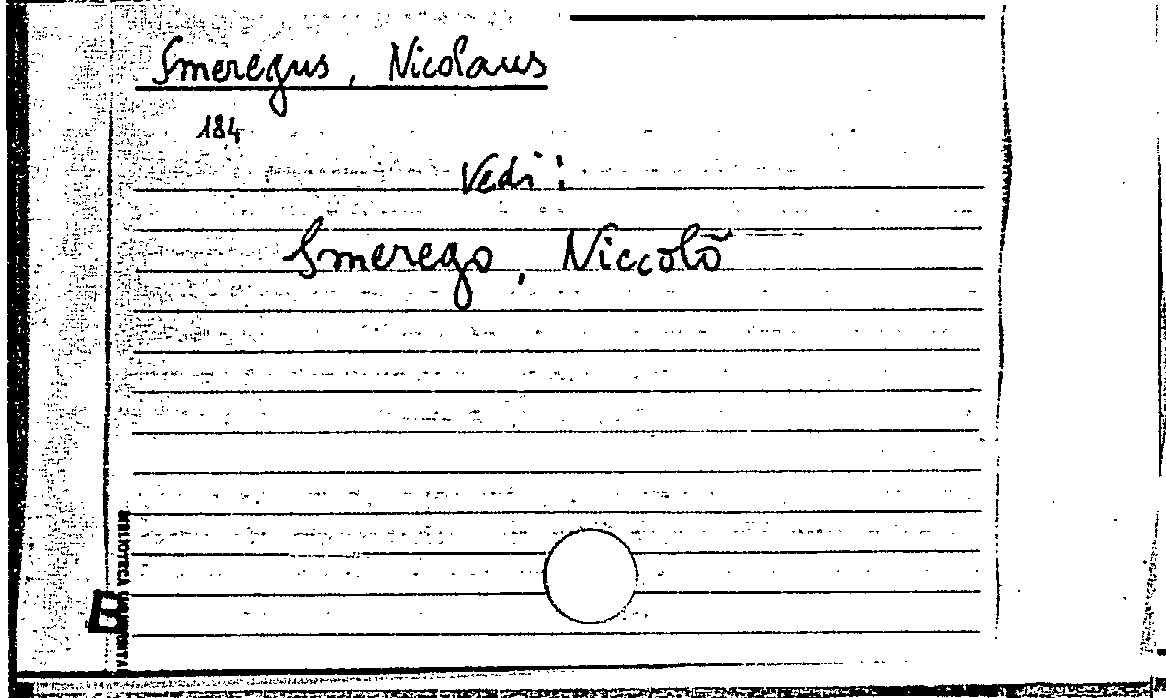 Smeregus, Nicolaus
184
Vedi:
Smerego, Niccolò
BIBLIOTECA